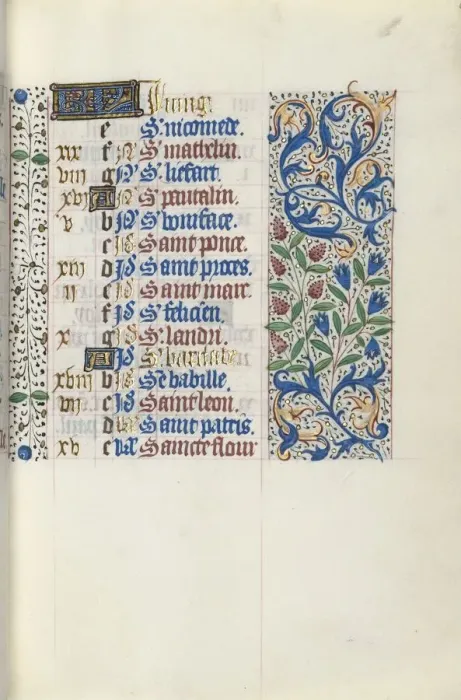 KL Juing.
e S. nicomede.
xix f N S. mathelin.
viii g N S. liefart.
xvi A N S. pantalin.
v b N S. boniface.
c Id Saint ponce.
xiii d Id Saint proces.
ii e Id Saint marc.
f Id S. felicien.
x g Id S. landri.
A Id S. barnabe.
xviii b Id Se babille.
vii c Id Saint leon.
d Saint patris.
xv e kl Saincte flour